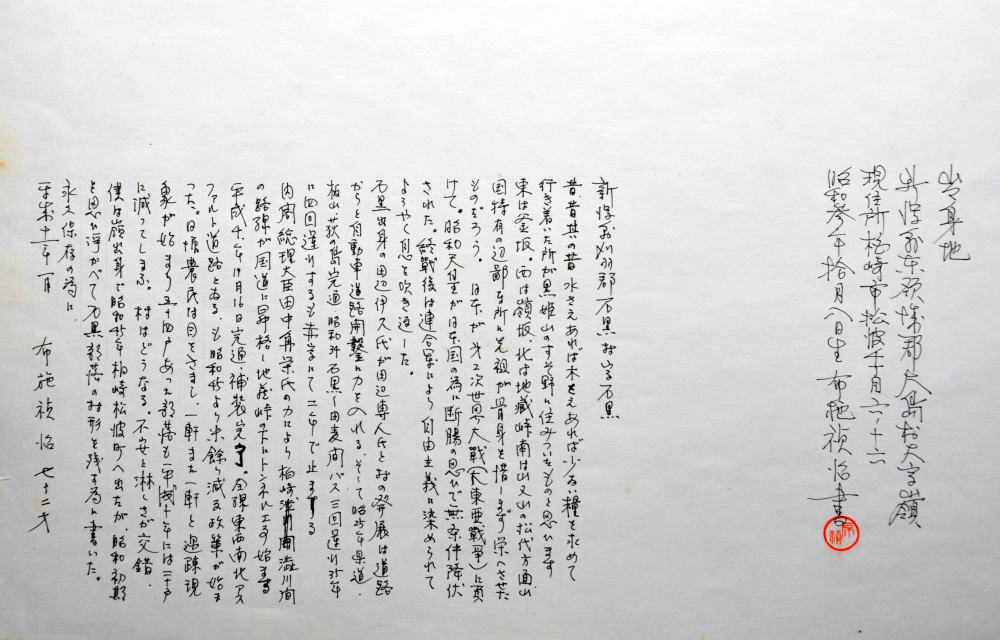 出身地
新潟県東頸城郡大島村大字嶺
現住所柏崎市松波千目六ノ十六
昭和参年拾月八日生 布施禎治書
新潟県刈羽郡石黒村字石黒
昔昔其の昔水さえあれば木さえあれば少ない糧を求めて
行き着いた所が黒姫山のすそ野に住みついたものと思います
東は釜坂。西は嶺坂、北は地蔵峠南は山又山の松代方面山
国特有の辺鄙な所に先祖が骨身を惜しまず栄へさせた
ものだろう。日本が第2次世界大戦(大東亜戦争)に負
けて。昭和天皇が日本国の為に断腸の思いで無条件降伏
された。終戦後は連合軍により自由主義に染められて
ようやく息を吹き返した。
石黒出身の田辺伊久氏が田辺専人氏と村の発展は道路
からと自動車道路開鑿に力を入れる。そして昭 県道・
板山荻の島完通 昭和34石黒ー田麦間バス三回運行35年
に四回運行するも赤字にて で止まる
内閣総理大臣田中角栄氏の力により柏崎 間
の路線が国道に昇格し地蔵峠のトンネルに工事始まる
平成4年11月16日完通・補装完了。全線東西南北アス
ファルト道路となる。も昭和45より米余り減る政策が始ま
った。日増農民は目をさまし、一軒また一軒と過疎現
象が始まり五十四戸あった部落も平成十年には二十戸
に減ってしまふ。村はどうなる。不安と淋しさが交錯。
僕は嶺出身で昭和45年柏崎松波町へ出たが、昭和初期
を思い浮かべて石黒部落の村形を残す為に書いた。
永久保存の為に
平成十二年一月 布施禎治 七十二才